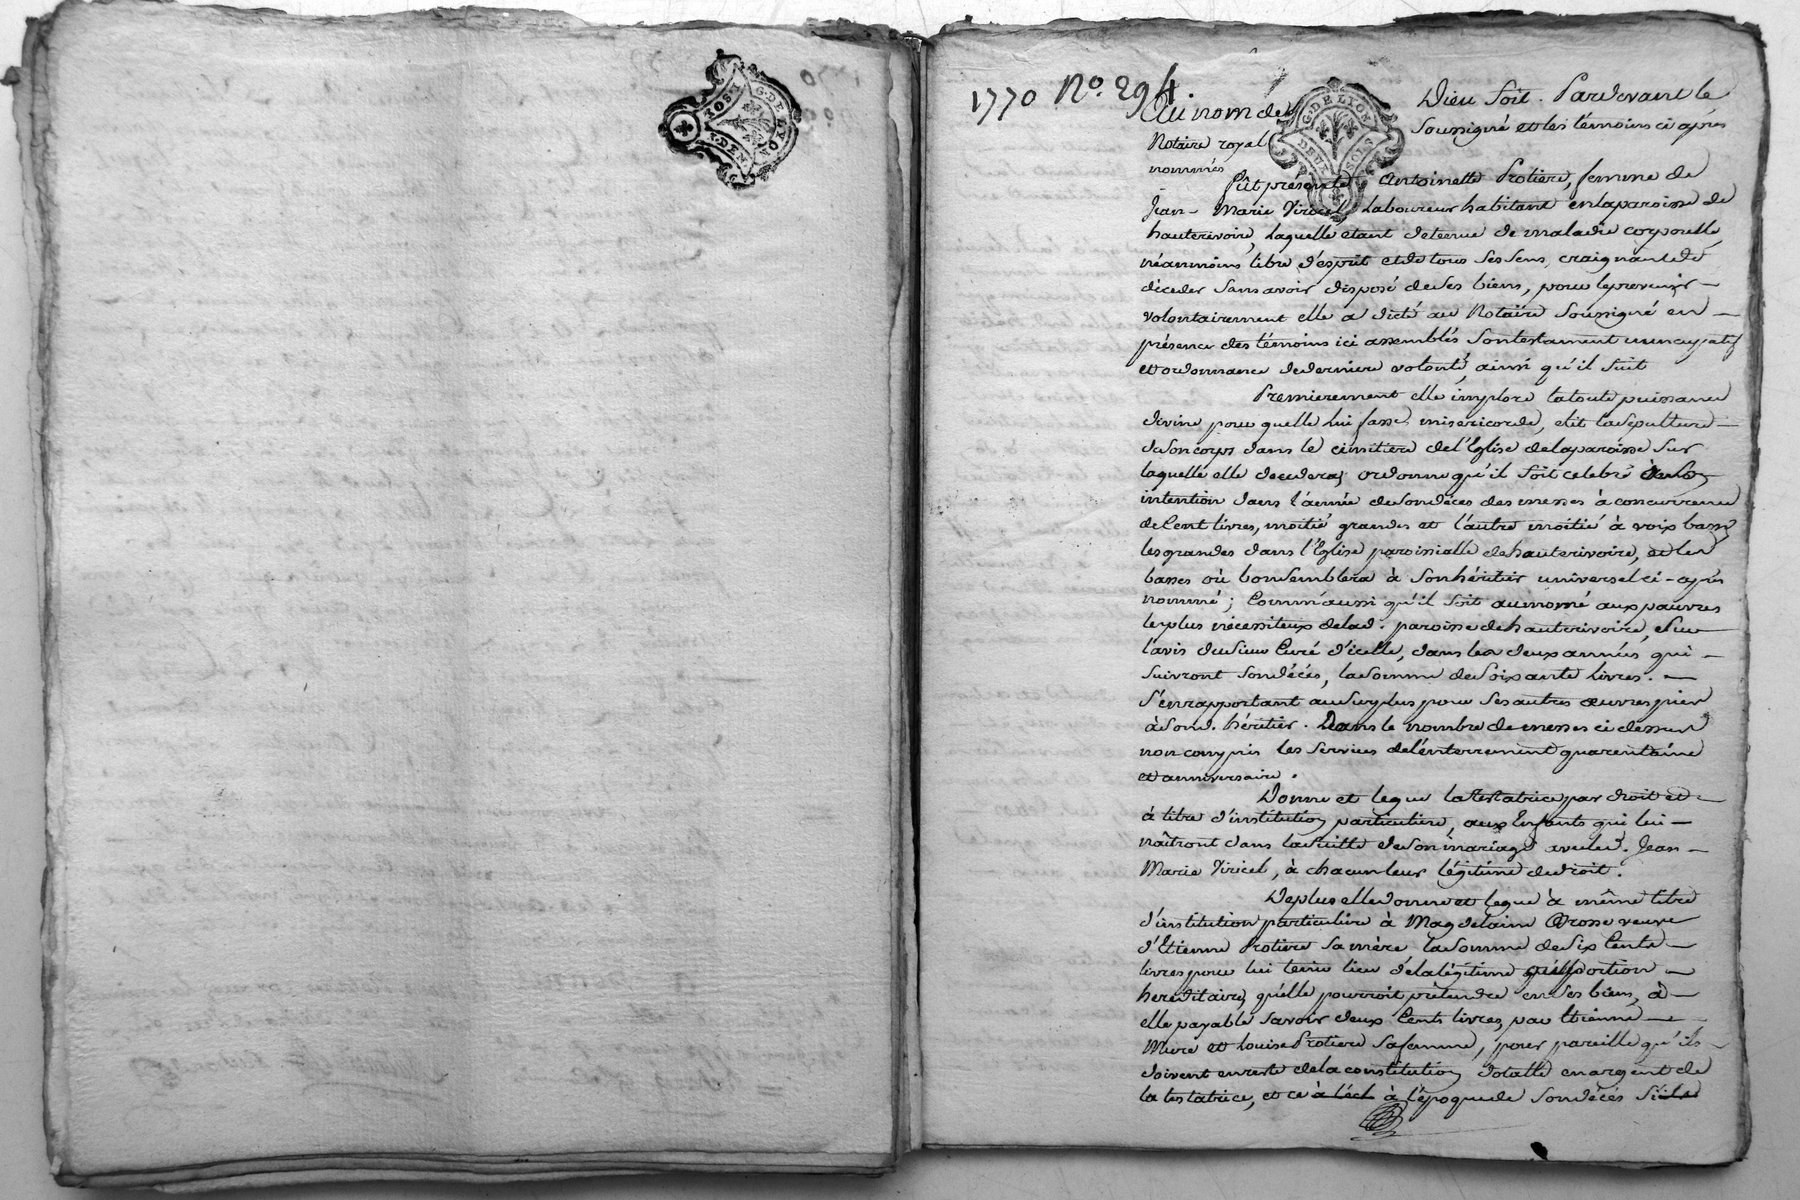 G. DE LYON
DEUX SOLS
1770 No. 294.
G. DE LYON
DEUX SOLS
Au nom de Dieu soit. Pardevant le
Notaire royal soussigné et les témoins ci après
nommés
fût presente Antoinette Protiere, femme de
Jean-Marie Viricel Laboureur habitant en la paroisse de
hauterivoire, laquelle etant detenue de maladie corporelle
néanmoins libre d'esprit et de tous ses sens, craignant de
décéder sans avoir disposé de ses biens, pour le prevenir -
volontairement elle a dicté au Notaire soussigné en -
présence des témoins ici assemblés son testament nuncupatif
et ordonnance de derniere volonté, ainsi qu'il suit
Premierement elle implore la toute puissance
divine pour quelle lui fasse misericorde, elit la sépulture -
de son corps dans le cimitiere de l'Eglise de la paroisse sur
laquelle elle decedera; ordonne qu'il soit celebré à son
intention dans l'année de son décès des messes à concurrence
de Cent livres, moitié grandes et l'autre moitié à voix basse
les grandes dans l'Eglise paroissialle de hauterivoire, et les
basses où bon semblera à son héritier universel ci-après
nommé; Comm'aussi qu'il soit aumoné aux pauvres
le plus nécessiteux de lad. paroisse de hauterivoire, sur
l'avis du sieur Curé d'icelle, dans les deux années qui -
suivront son décès, la somme de soixante livres. -
S'en rapportant au surplus pour ses autres œuvres pies
à son d. héritier. Dans le nombre de messes ci dessus
non compris les services de l'enterrement quarentaine
et anniversaire.
Donne et legue la testatrice par droit et -
à titre d'institution particuliere, aux Enfants qui lui -
naîtront dans la suitte de son mariage avec led. Jean -
Marie Viricel, à chacun leur légitime de droit.
De plus elle donne et legue à même titre
d'institution particulière à Magdelaine Crosse veuve
d'Etienne Protiere sa mère la somme de six Cents -
livres pour lui tenir lieu de la légitime portion -
hereditaire, qu'elle pourroit prétendre en ses biens, à -
elle payable savoir deux Cents livres, par Etienne -
Mure et Louise Protiere sa femme, pour pareille qu'ils -
doivent en reste de la constitution dotalle en argent de
la testatrice, et ce à l'époque de son décès si